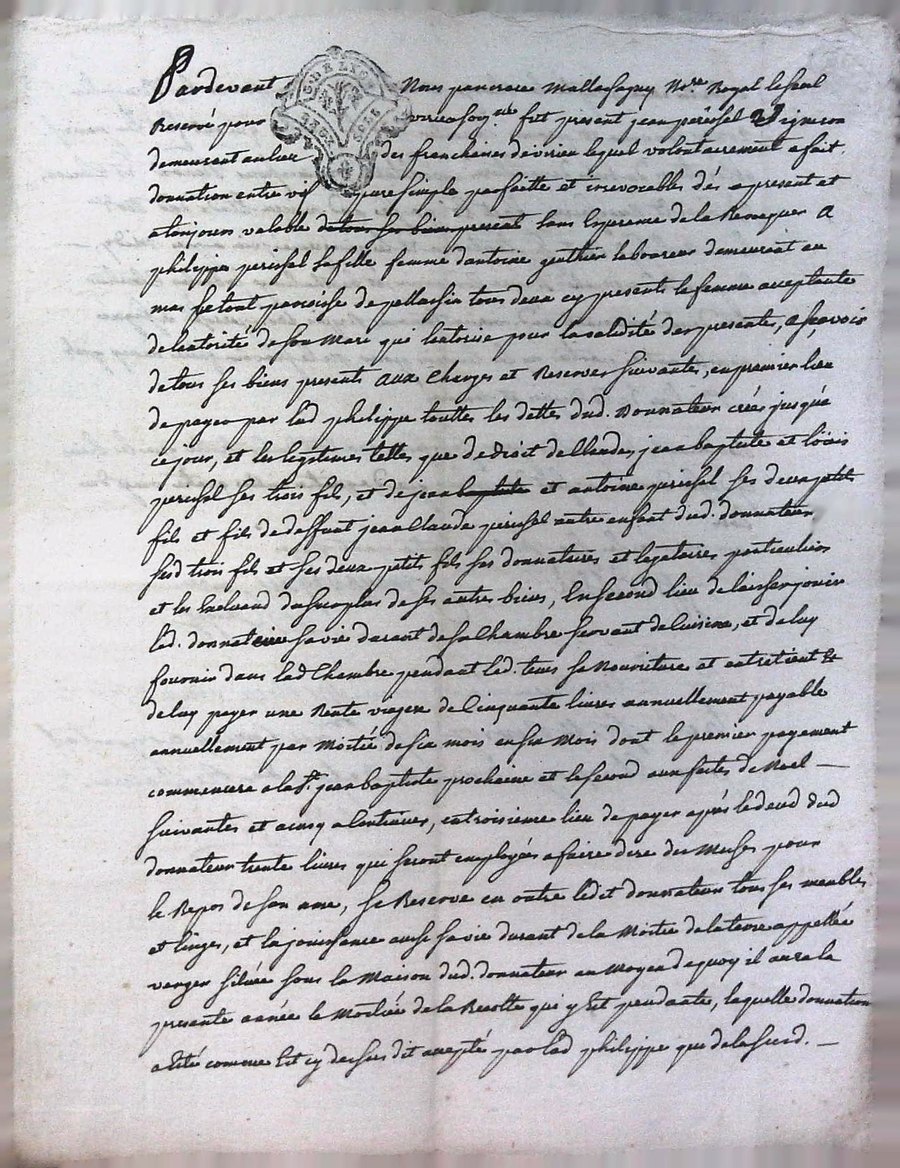 Pardevant Nous pancrace Mallassagny No.re Royal le seul
Reservé pour soy.né fut present jean périssel Vigneron
demeurant au lieu des franchaises de virieu lequel volontairement a fait
donnation entre vif pure simple parfaitte et irrevocables dés a present et
a toujours valable de tous ses biens presents sans Esperance de la Revoquer A
philippe perissel sa fille femme d'antoine gauthier laboureur demeurant au
mas parroisse de pellussin tous deux cy presents la femme acceptante
de l'autorité de son Mary qui l'autorise pour la validité des presentes, a scavoir
de tous ses biens presents aux Charges et Reserves suivantes, en premier lieu
de payer par lad philippe touttes les dettes dud. Donnateur créés jusqua
ce jour, et les legitimes telles que de droit a claude, jean baptiste et loüis
perissel ses trois fils, et de jean baptiste et antoine perissel ses deux petits
fils et fils de deffunt jean Claude perissel autre enfant dud. donnateur
sesd trois fils et ses deux petits fils ses donnataires et legataires particuliers
et les Excluand du surplus de ses autres biens, En second lieu de laisser jouir
led. donnateur sa vie durant de sa Chambre servant de Cuisine, et de luy
fournir dans lad Chambre pendant led. tems sa Nourriture et entretient Et
de luy payer une Rente viagere de Cinquante livres annuellement payable
annuellement par Moitié de six mois en six Mois dont le premier payement
commencera a la St. jean baptiste prochaine et le second aux faites de Noel —
suivantes et ainsy a Continuer, en troisieme lieu de payer après le deced dud
donnateur trente livres qui seront employés a faire dire des Messes pour
le Repos de son ame, se Reserve en outre ledit donnateur tous ses meubles
et linges, et la joüissance aussi sa vie durant de la Moitié de la terre appellée
verger située sous la Maison dud. donnateur au Moyen de quoy il aura la
presente année la Moitiée de la Recolte qui y Est pendante, laquelle donnation
a été comme Est cy dessus dit acceptée par lad philippe que de la susd. —